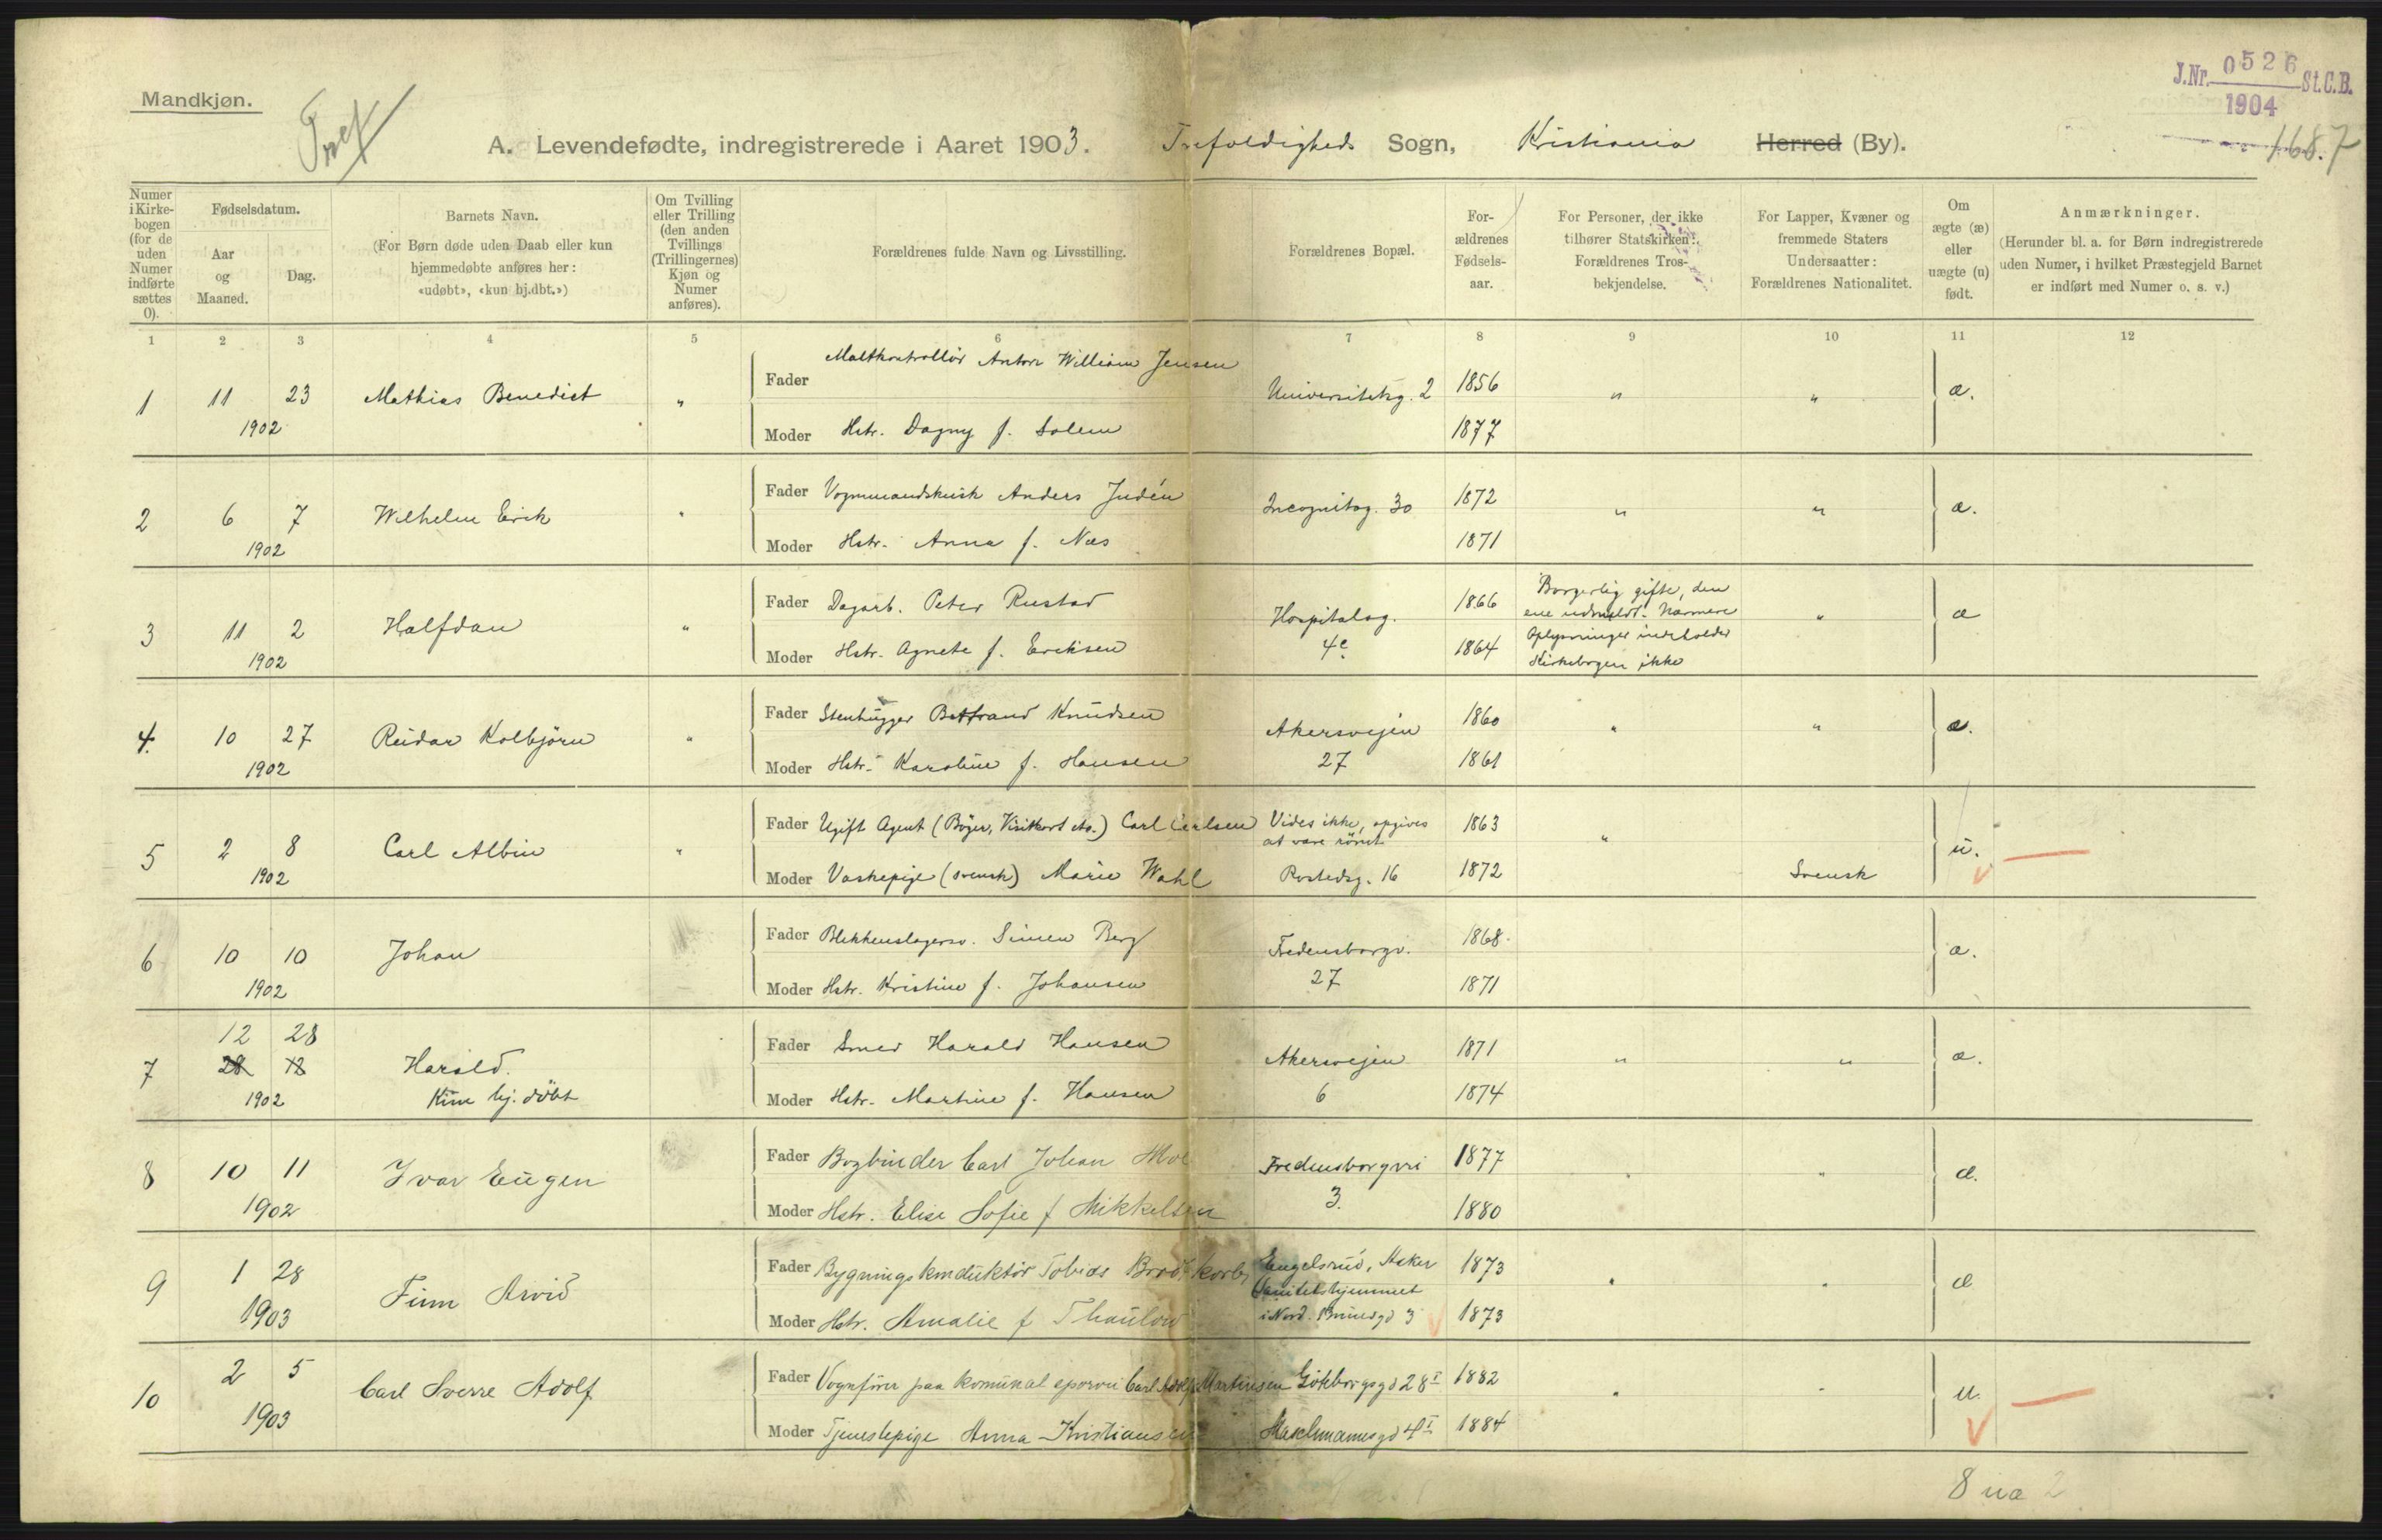 Mandkjøn.
Tref
J.Nr. 0526 St.C.B.
1904
1687
A. Levendefødte, indregistrerede i Aaret 1903. Trefoldigheds Sogn, Kristiania Herred (By).
Numer i Kirkebogen (for de uden Numer indførte sættes 0).
Fødselsdatum.
Aar og Maaned.
Dag.
Barnets Navn.
(For Børn døde uden Daab eller kun
hjemmedøbte anføres her:
«udøbt», «kun hj.dbt.»)
Om Tvilling
eller Trilling
(den anden
Tvillings
(Trillingernes)
Kjøn og
Numer
anføres).
Forældrenes fulde Navn og Livsstilling.
Forældrenes Bopæl.
For-
ældrenes
Fødsels-
aar.
For Personer, der ikke
tilhører Statskirken:
Forældrenes Tros-
bekjendelse.
For Lapper, Kvæner og
fremmede Staters
Undersaatter:
Forældrenes Nationalitet.
Om
ægte (æ)
eller
uægte (u)
født.
Anmærkninger.
(Herunder bl. a. for Børn indregistrerede
uden Numer, i hvilket Præstegjeld Barnet
er indført med Numer o. s. v.)
1 2 3 4 5 6 7 8 9 10 11 12
1 11 23 Mathias Benedict " Fader Maltkontrollør Anton William Jensen Universitetsg. 2 1856 " " æ.
1902 Moder Hstr. Dagny f. Solem 1877
2 6 7 Wilhelm Erik " Fader Vognmandskusk Anders Judén Incognitog. 30 1872 " " æ.
1902 Moder Hstr. Anna f. Næs 1871
3 11 2 Halfdan " Fader Dagarb. Peter Rustad Hospitalsg. 1866 Borgerlig gifte, den
ene udmeldt. Nærmere " æ
1902 Moder Hstr. Agnete f. Ericksen 4c 1864 Oplysninger indeholder
Kirkebogen ikke
4. 10 27 Reidar Kolbjörn " Fader Stenhugger Knudsen Akersvejen 1860 " " æ.
1902 Moder Hstr. Karoline f. Hansen 27 1861
5 2 8 Carl Albin " Fader Ugift Agent (Bøger, Visitkort etc.) Carl Carlsen Vides ikke, opgives
at være römt 1863 " u.
1902 Moder Vaskepige (svensk) Marie Wahl Rostedsg. 16 1872 Svensk
6 10 10 Johan Fader Blikkenslagersv. Simen Berg Fredensborgv. 1868 æ.
1902 Moder Hstr. Kristine f. Johansen 27 1871
12 28
7 28 12 Harald. Fader Smed Harald Hansen Akersvejen 1871 " " æ.
1902 Kun hj. döbt Moder Hstr. Martine f. Hansen 6 1874
8 10 11 Ivar Eugen Fader Bogbinder Carl Johan Fredensborgvei 1877 " " æ.
1902 Moder Hstr. Elise Sofie f Mikkelsen 3. 1880
9 1 28 Finn Arvid Fader Bygningskonduktör Tobias Brodtkorb Engelsrud, Aker 1873 " " æ
Sanitetshjemmet
1903 Moder Hstr. Amalie f Thaulow i Nord. 3 1873
10 2 5 Carl Sverre Adolf Fader Vognfører paa komunal sporvei Carl Adolf Martinsen Göteborgsgd 28 I 1882 " " u.
1903 Moder Tjenestepige Anna Kristiansen Maschmannsgd 4 I 1884
8 uæ 2